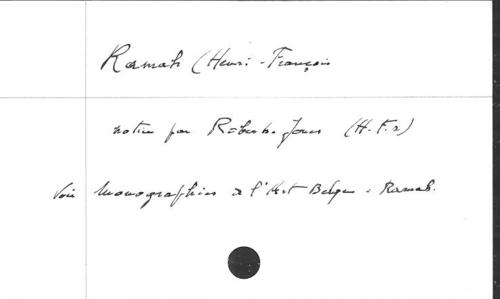 Ramah (Henri-François
notice par Roberts-Jones (H.F.R)
Voir Monographies de l'Art Belge - Ramah.